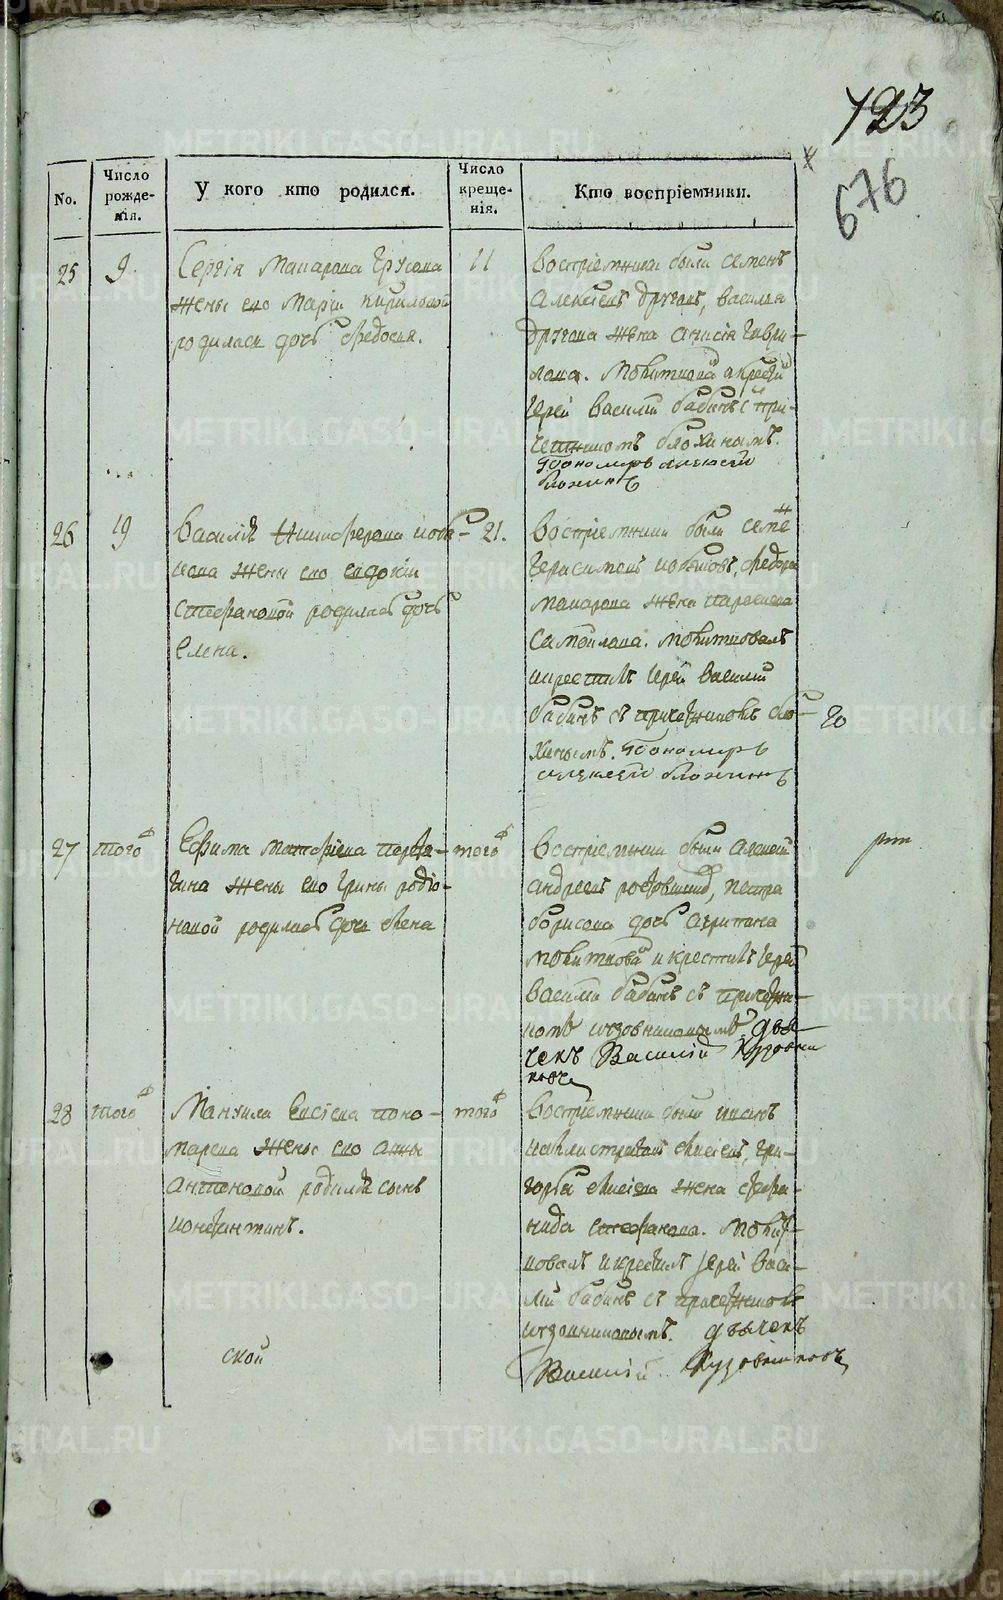 123
676
No.
Число рожде-нія.
У кого кто родился.
Число креще-нія.
Кто воспріемники.
25
9
Сергія Макарова
жены ево Маріи Кириловой
родилась дочь Федосия.
11
Воспріемники были Семенъ
Алексеевъ Друговъ, Василья
Другова жена Анисія Гаври-
лова. Молитвовалъ и крестилъ
Іерей Василій Бабинъ с при-
четникомъ Блохинымъ.
Пономарь Алексей
Блохинъ
26
19
Василья Никифорова
жены ево Евдокіи
Стефановой родилась дочь
Елена.
21.
Воспріемники были Семенъ
Герасимовъ Федора
Макарова жена Парасковья
Самойлова. Молитвовалъ
и крестилъ Іерей Василий
Бабинъ съ причетникомъ Бло-
хинымъ. Пономарь
Алексей Блохинъ
27
того
Ефима Матфіева
жены ево Ірины Родіо-
новой родилась дочь Елена
того
Воспріемники были Алексей
Андреевъ Петра
Борисова дочь Агрипина
Молитвовалъ и крестилъ Іерей
Василий Бабинъ съ причетни-
комъ Кузовниковымъ. Дья-
чекъ Василий Кузовни
ковъ
28
того
Мануила Елисеева Поно-
марева жены ево Анны
Антоновой родился сынъ
Константинъ.
того
Воспріемники были Иванъ
Калистратовъ Елисеевъ, Гри-
горья Елисеева жена Стефа-
нида Стефанова. Молит-
вовалъ и крестилъ Іерей Васи-
лий Бабинъ съ причетникомъ
Кузовниковымъ. Дьячекъ
Василий Кузовниковъ
ской
METRIKI.GASO-URAL.RU